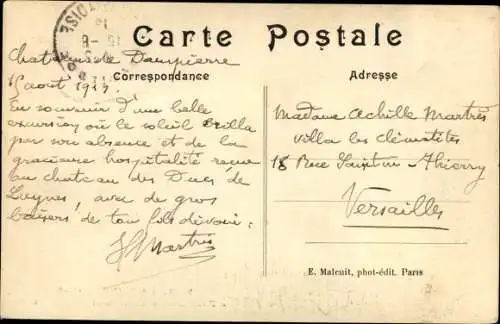 Carte Postale
Correspondance
Adresse
Château de Dampierre
15 août 1913.
En souvenir d'une belle
excursion où le soleil brilla
par son absence et de la
gracieuse hospitalité reçue
au chateau des Ducs de
Luynes, avec de gros
baisers de ton fils dévoué:
Martrès
Madame Achille Martrès
villa les clématites
18 Rue Thierry
Versailles
E. Malcuit, phot-édit. Paris